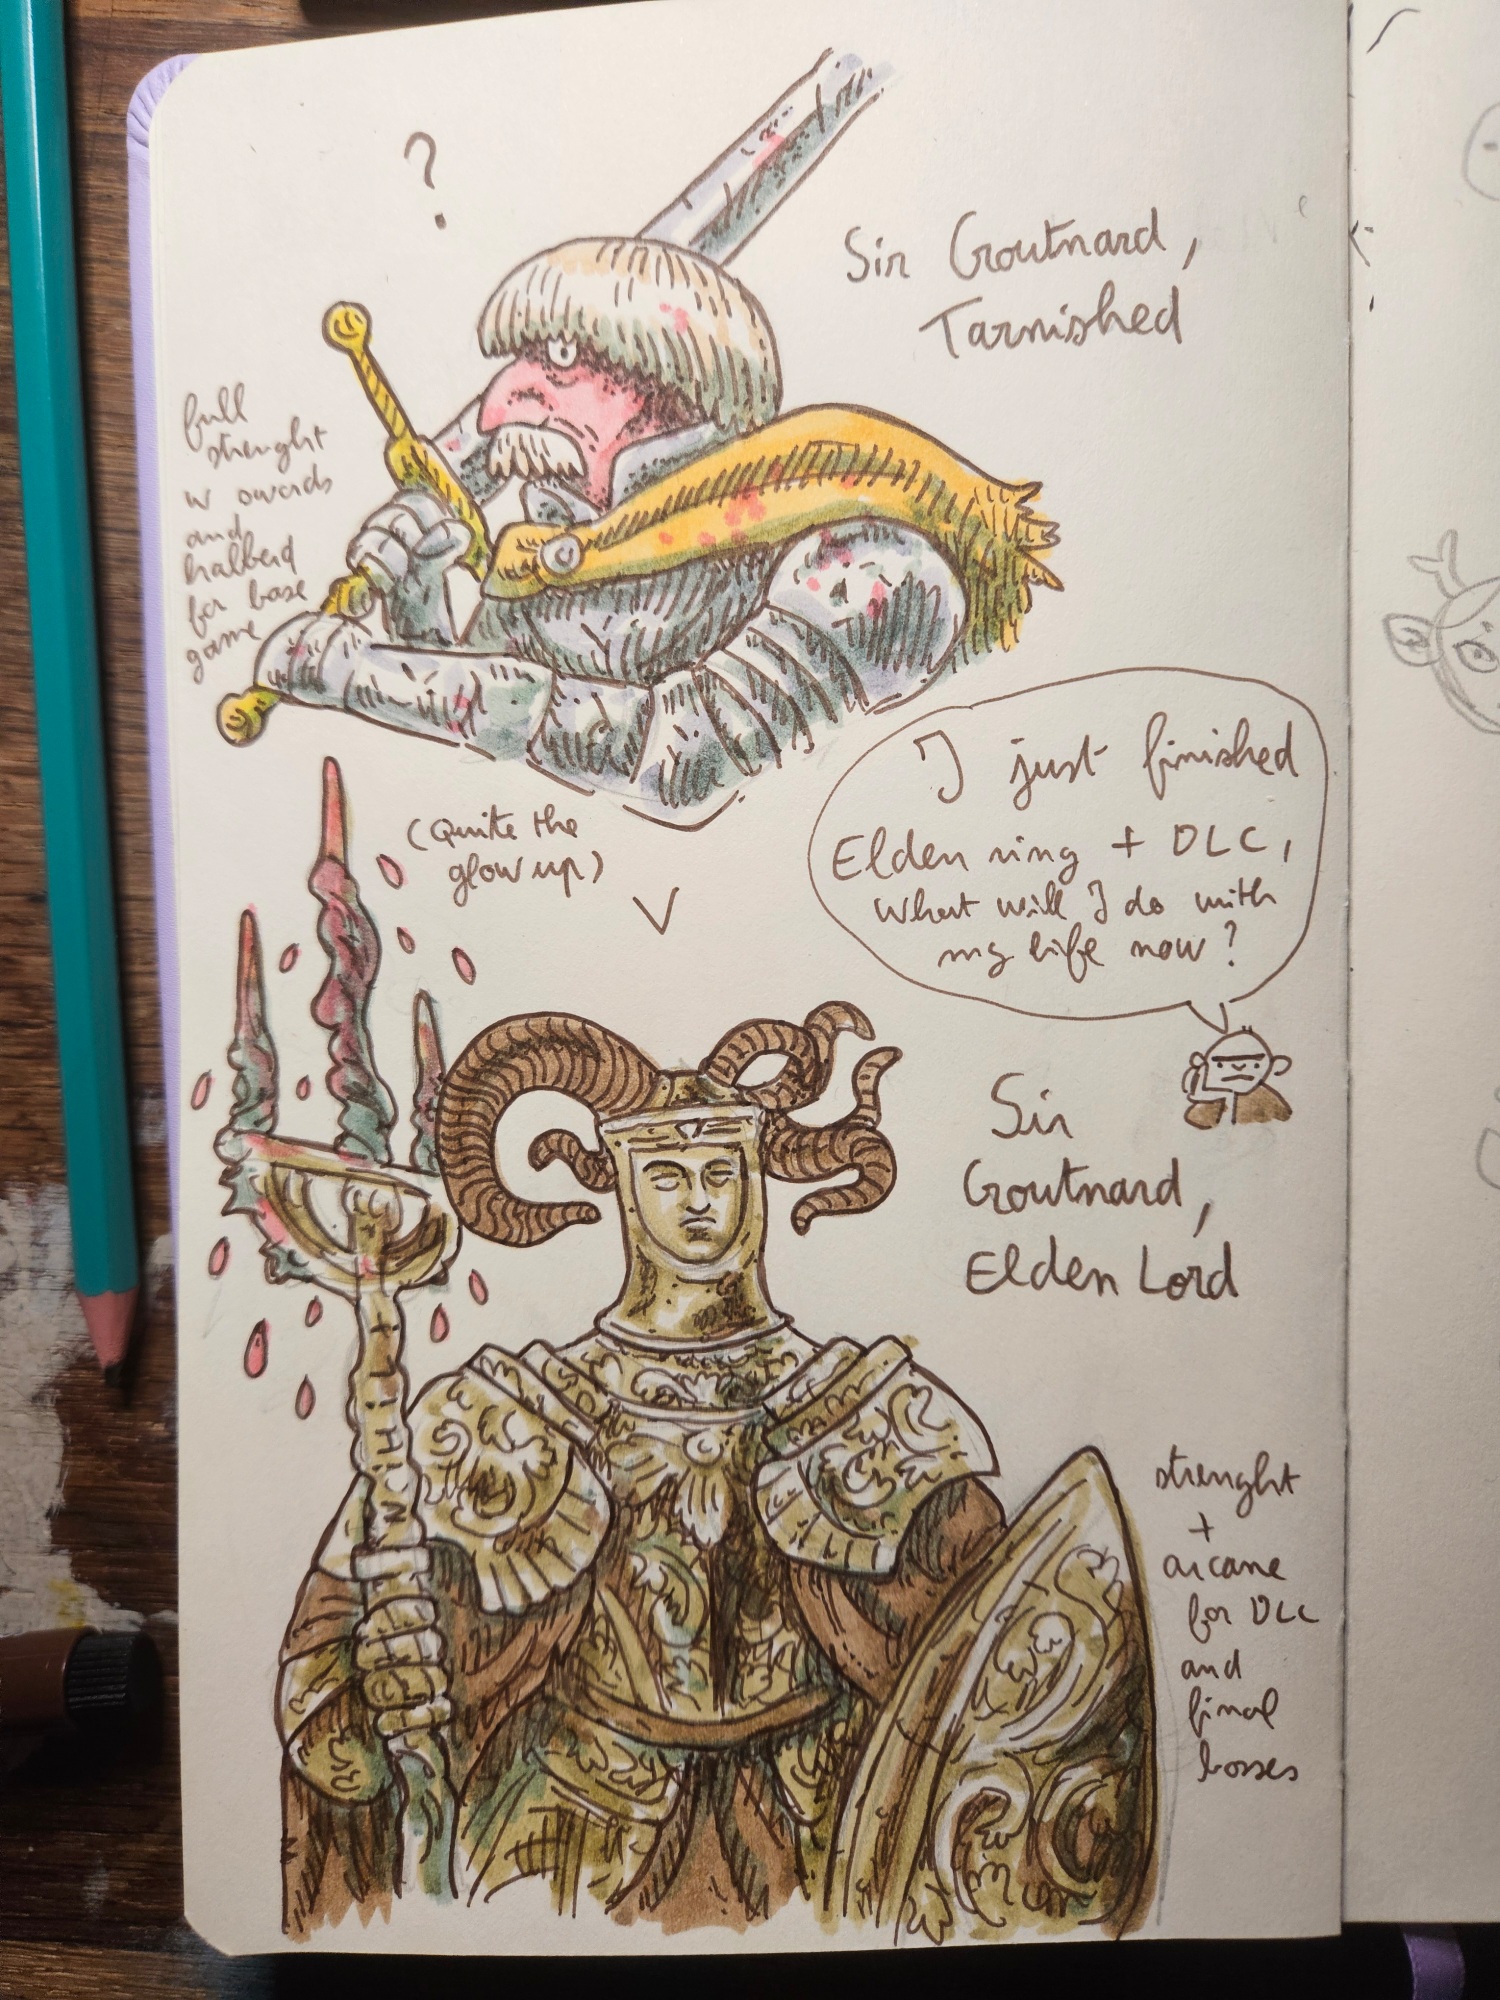 ?
Sir Groutnard,
Tarnished
full
strenght
w swords
and
halberd
for base
game
(Quite the
glow up)
I just finished
Elden ring + DLC,
What will I do with
my life now?
Sir
Groutnard,
Elden Lord
strenght
+
arcane
for DLC
and
final
bosses